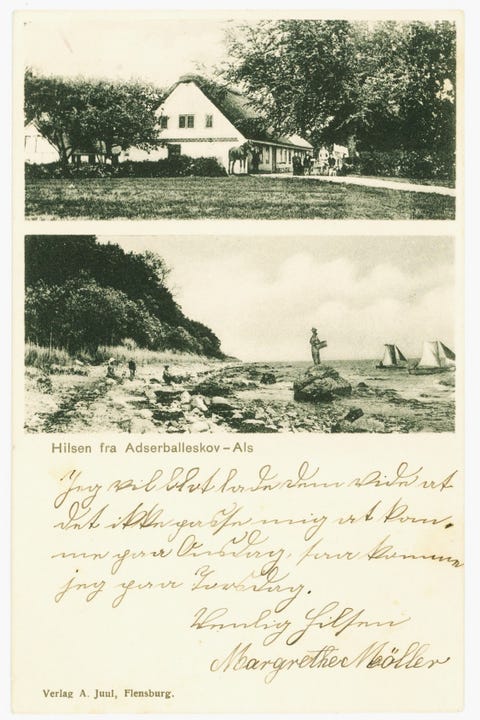 Hilsen fra Adserballeskov – Als
Jeg vil blot lade dem vide at
det ikke passe mig at kom-
me paa Onsdag, saa komme
jeg paa Torsdag.
Venlig Hilsen
Margrethe Möller
Verlag A. Juul, Flensburg.